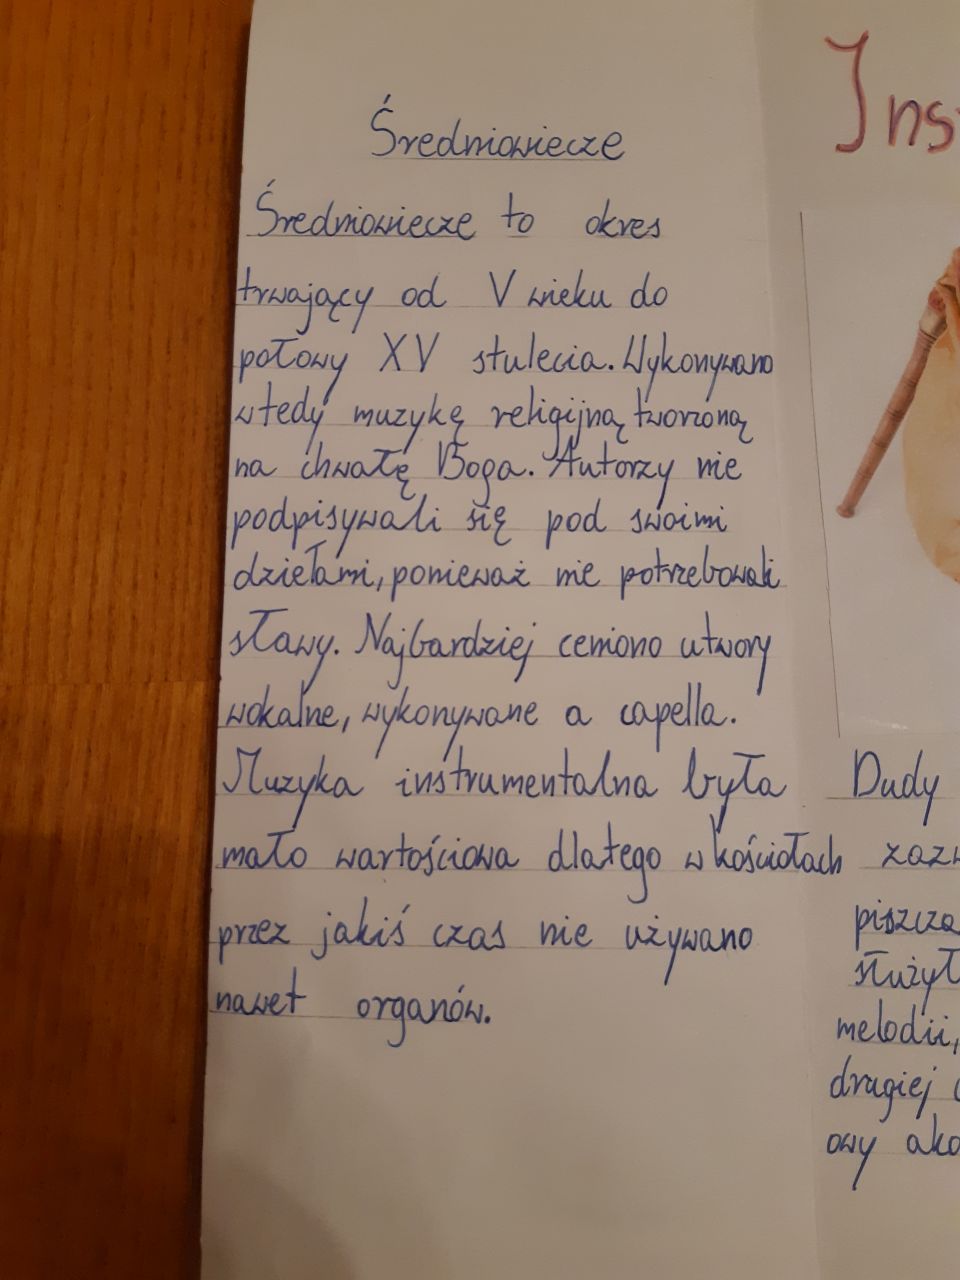 Średniowiecze
Średniowiecze to okres
trwający od V wieku do
połowy XV stulecia. Wykonywano
wtedy muzykę religijną tworzoną
na chwałę Boga. Autorzy nie
podpisywali się pod swoimi
dziełami, ponieważ nie potrzebowali
sławy. Najbardziej ceniono utwory
wokalne, wykonywane a capella.
Muzyka instrumentalna była
mało wartościowa dlatego w kościołach
przez jakiś czas nie używano
nawet organów.
Dudy
melodii,
drugiej